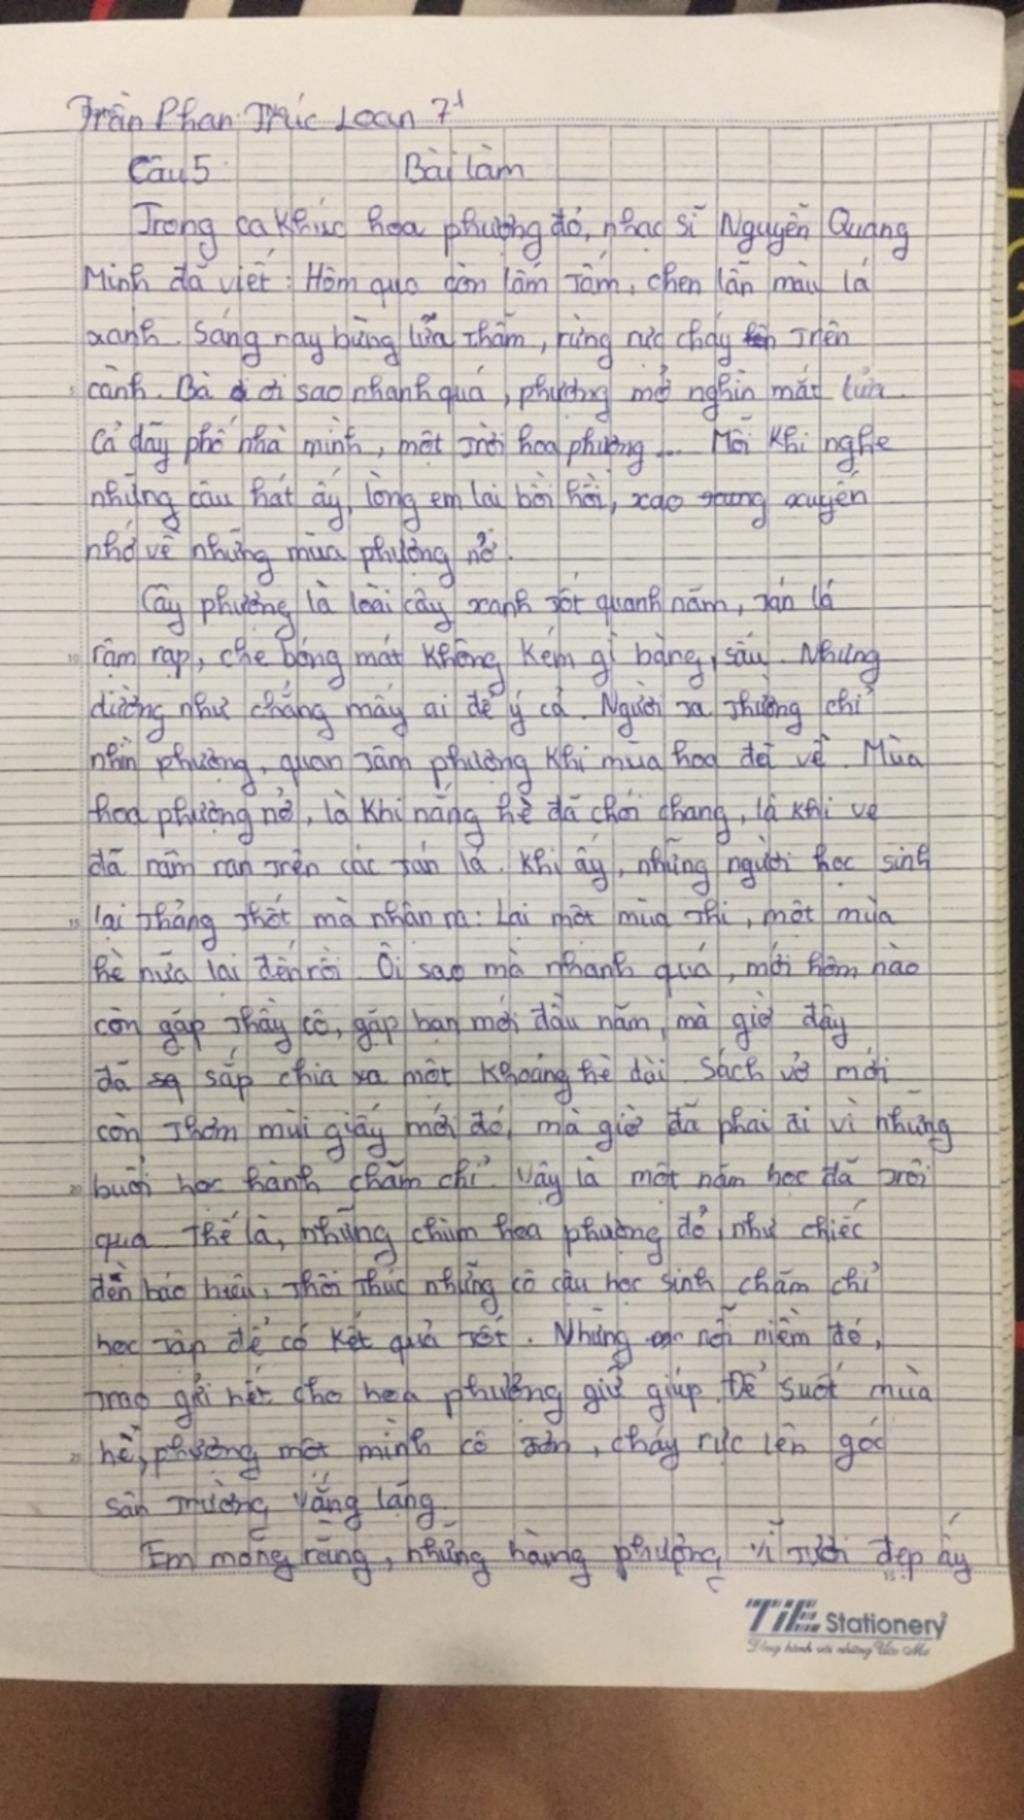 Trần Phan Trúc Loan 7¹
Câu 5 Bài làm
Trong ca khúc hoa phượng đỏ, nhạc sĩ Nguyễn Quang
Minh đã viết: Hôm qua còn lấm tấm, chen lẫn màu lá
xanh. Sáng nay bừng lửa thẫm, rừng rực cháy trên
cành. Bà ơi sao nhanh quá, phượng mở nghìn mắt lửa.
Cả dãy phố nhà mình, một trời hoa phượng... Mỗi khi nghe
những câu hát ấy, lòng em lại bồi hồi, xao xuyến
nhớ về những mùa phượng nở.
Cây phượng là loài cây xanh tốt quanh năm, tán lá
rậm rạp, che bóng mát không kém gì bàng, sấu. Nhưng
dường như chẳng mấy ai để ý cả. Người ta thường chỉ
nhìn phượng, quan tâm phượng khi mùa hoa đã về. Mùa
hoa phượng nở, là khi nắng hè đã chói chang, là khi ve
đã râm ran trên các tán lá. Khi ấy, những người học sinh
lại thảng thốt mà nhận ra: Lại một mùa thi, một mùa
hè nữa lại đến rồi. Ôi sao mà nhanh quá, mới hôm nào
còn gặp thầy cô, gặp bạn mới đầu năm, mà giờ đây
đã sắp chia xa một khoảng hè dài. Sách vở mới
còn thơm mùi giấy mới đó, mà giờ đã phai đi vì những
buổi học hành chăm chỉ. Vậy là một năm học đã trôi
qua. Thế là, những chùm hoa phượng đỏ, như chiếc
đèn báo hiệu, thôi thúc những cô cậu học sinh chăm chỉ
học tập để có kết quả tốt. Những nỗi niềm đó,
trao gửi hết cho hoa phượng giữ giúp. Để suốt mùa
hè, phượng một mình cô đơn, cháy rực lên góc
sân trường vắng lặng.
Em mong rằng, những hàng phượng vĩ tươi đẹp ấy
TiE Stationery
Đồng hành với những Ước Mơ